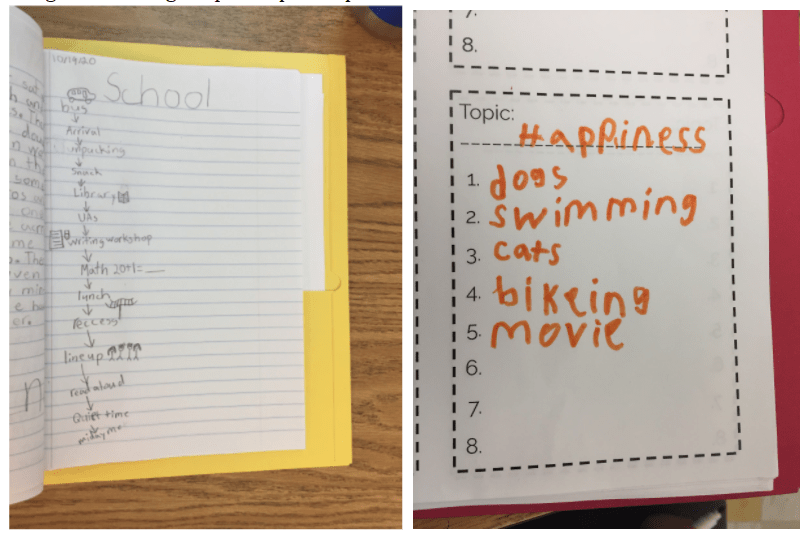 10/19/20
School
bus
Arrival
unpacking
Snack
Library
UAs
writing workshop
Math 20+1=__
lunch
reccess
lineup
read aloud
Quiet time
7.
8.
Topic:
Happiness
1. dogs
2. swimming
3. cats
4. bikeing
5. movie
6.
7.
8.